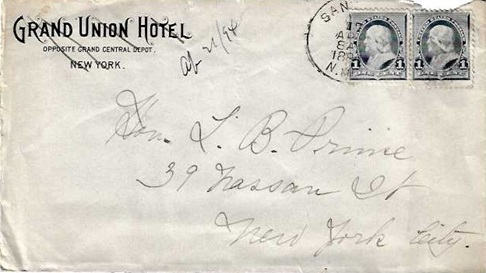 GRAND UNION HOTEL
OPPOSITE GRAND CENTRAL DEPOT.
NEW YORK.
Ap 21/94
SAN
17
N. M.
1 1
1 1
Hon. L. B. Prince
39 Nassau St
New York City.